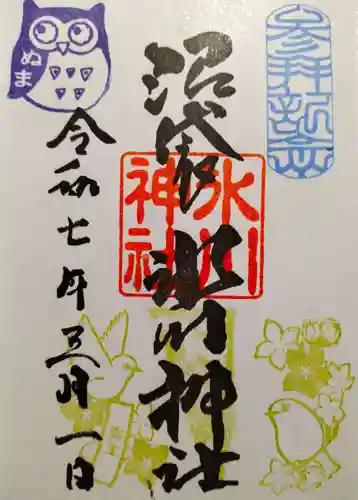 参拝記念
沼袋 氷川神社
氷川
神社
令和七年三月一日
ぬま